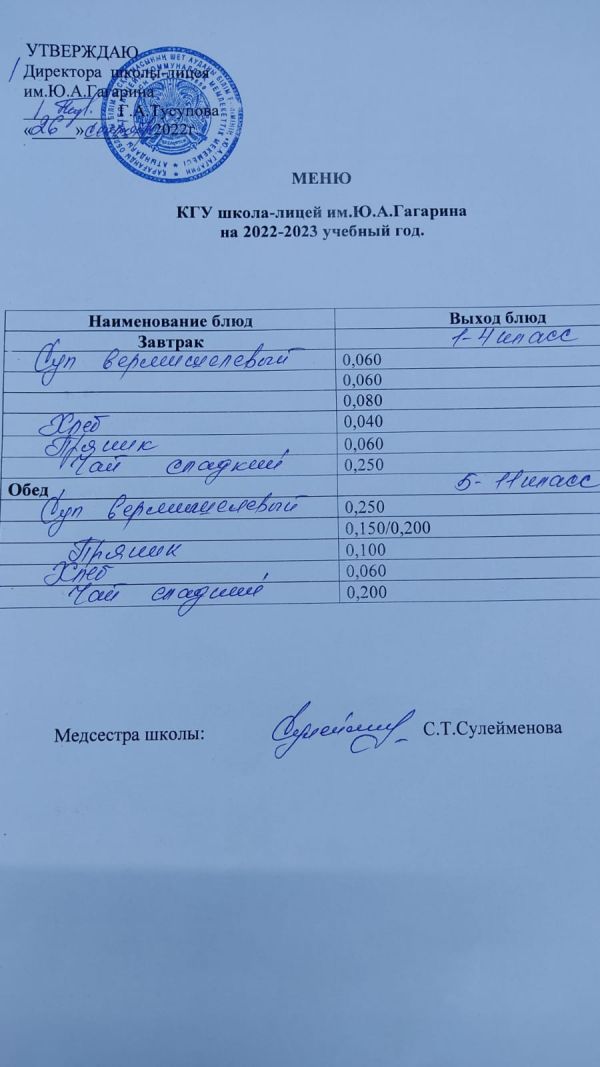 УТВЕРЖДАЮ
Директора школы-лицея
им.Ю.А.Гагарина
Г.А.Тусупова
«26» 2022г
МЕНЮ
КГУ школа-лицей им.Ю.А.Гагарина
на 2022-2023 учебный год.
Наименование блюд Выход блюд
Завтрак 1-4 класс
Суп вермишелевый 0,060
0,060
0,080
Хлеб 0,040
Пряник 0,060
Чай сладкий 0,250
Обед 5-11 класс
Суп вермишелевый 0,250
0,150/0,200
Пряник 0,100
Хлеб 0,060
Чай сладкий 0,200
Медсестра школы: С.Т.Сулейменова